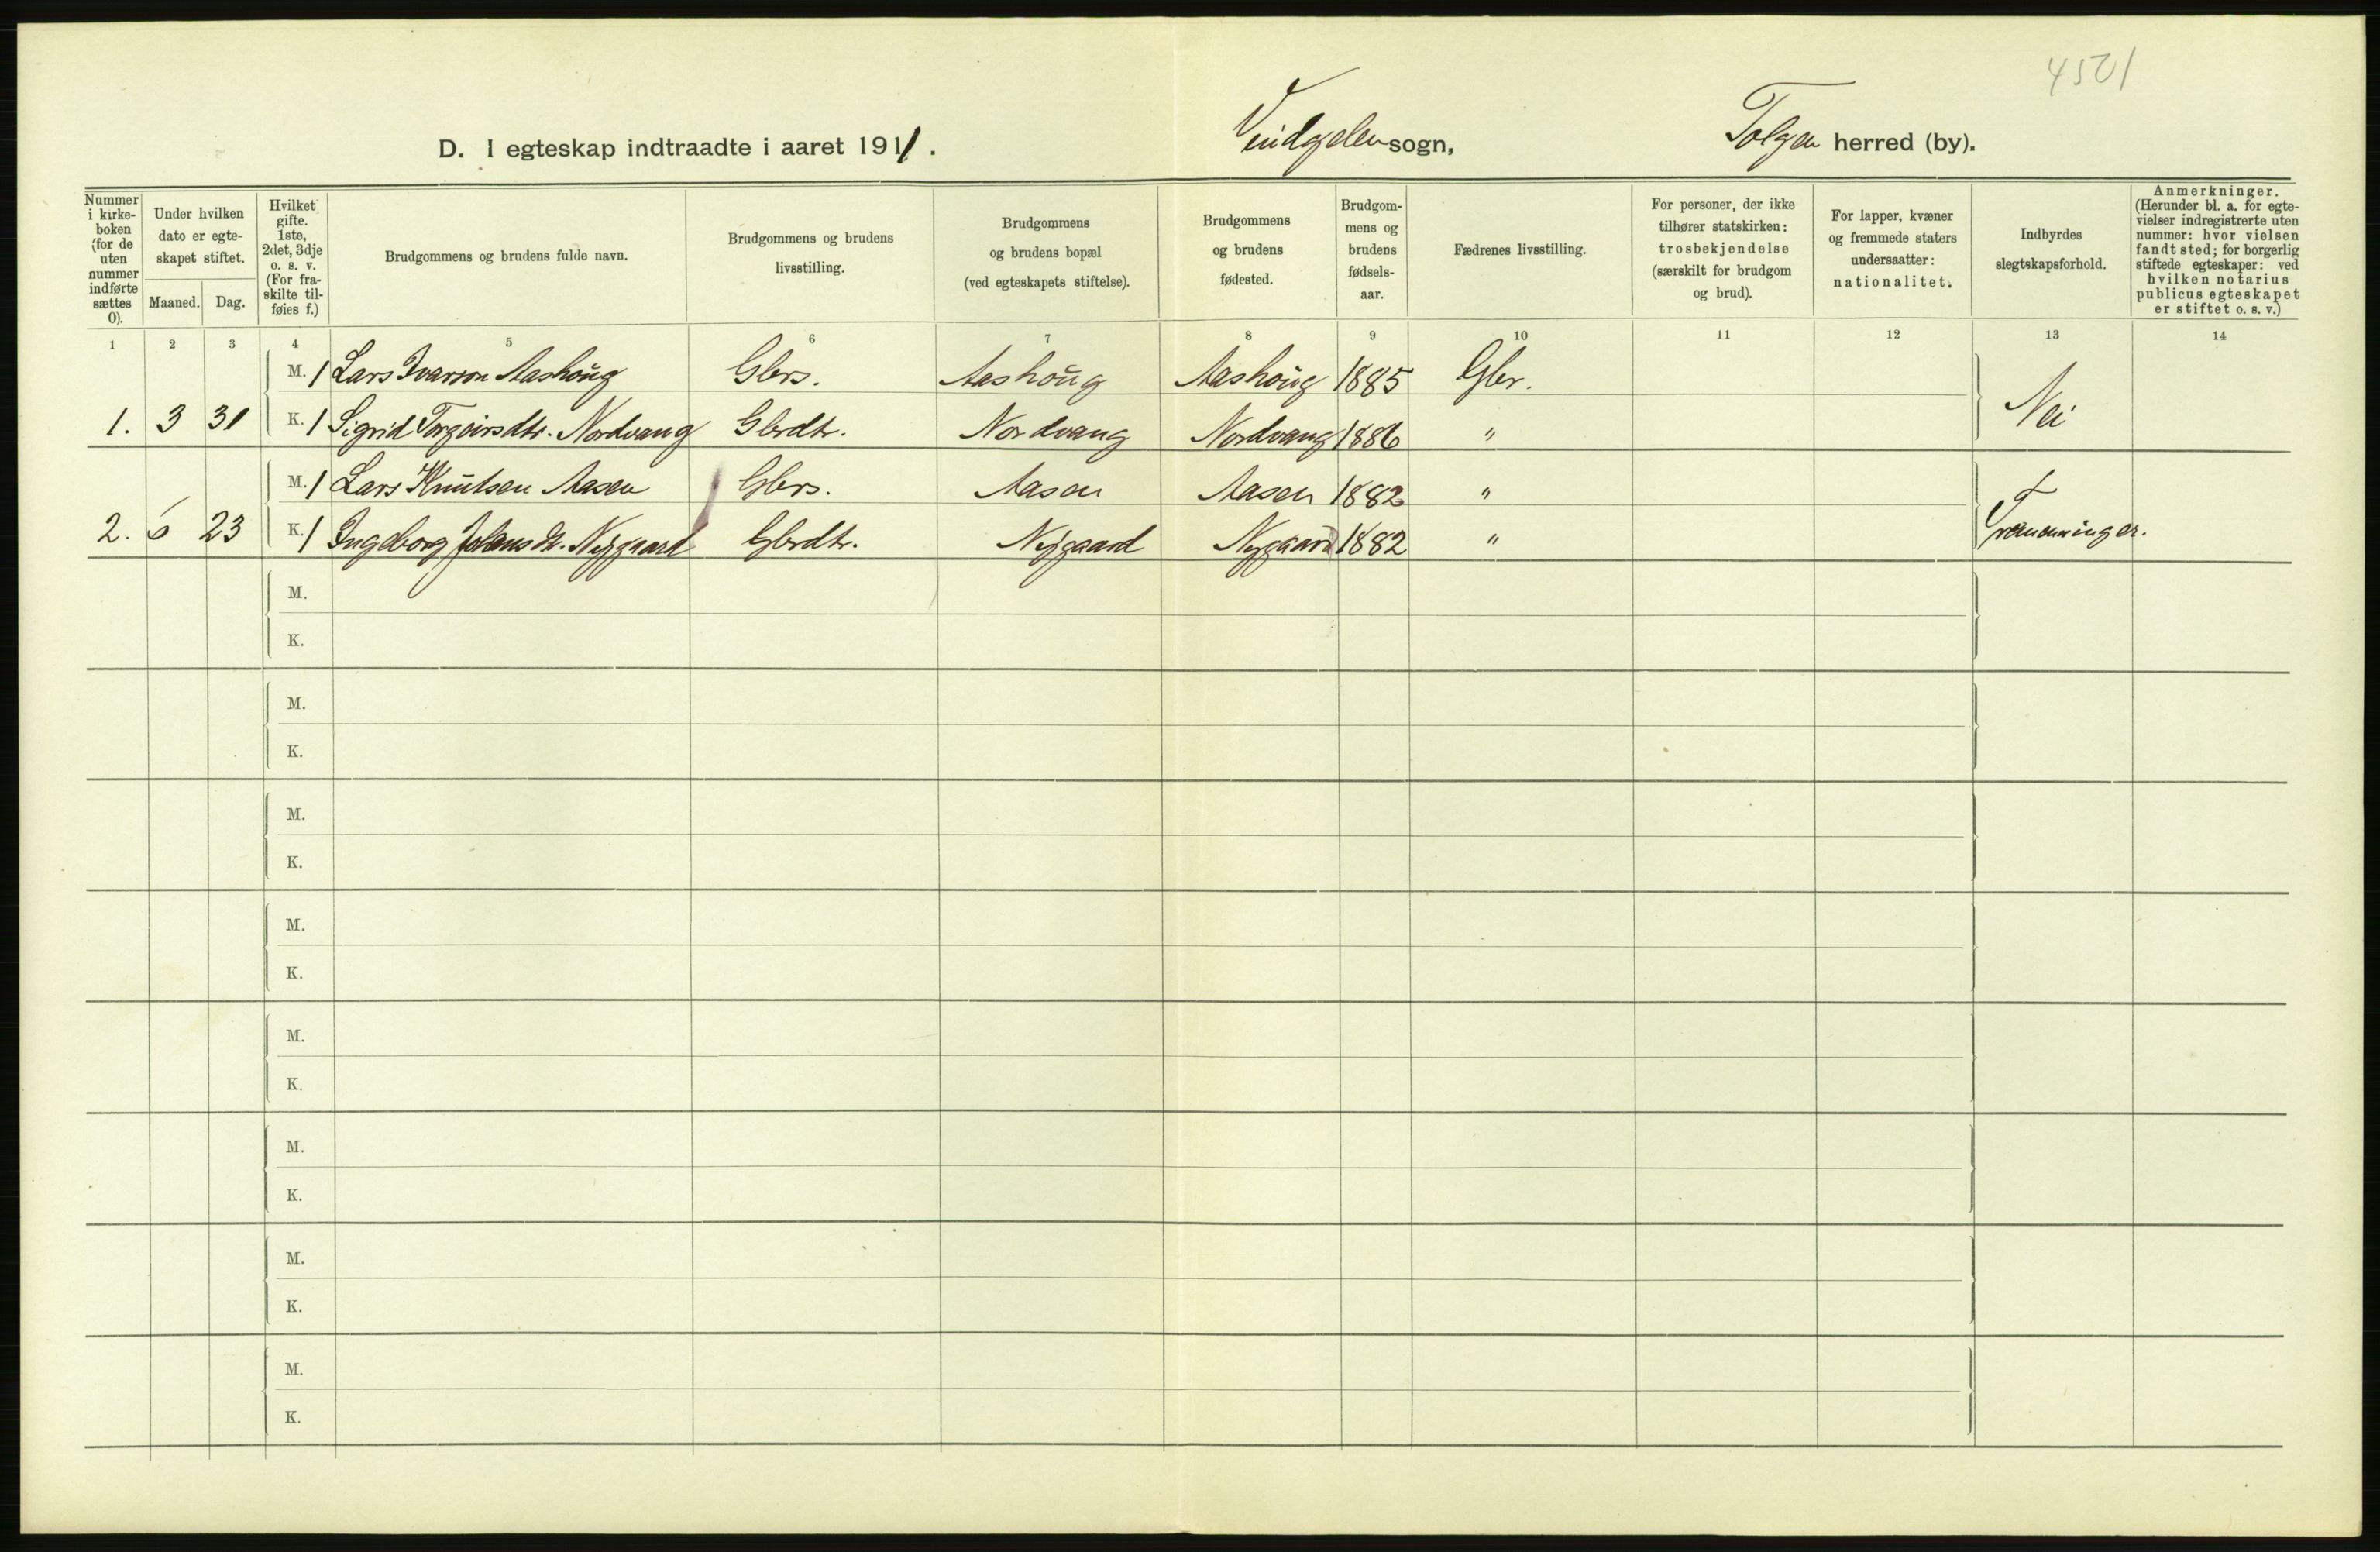 4501
D. I egteskap indtraadte i aaret 1911. Vindgelen sogn, Tolgen herred (by).
Nummer i kirkeboken (for de uten nummer indførte sættes 0).
Under hvilken dato er egteskapet stiftet.
Maaned. Dag.
Hvilket gifte. 1ste, 2det, 3dje o. s. v. (For fraskilte tilføies f.)
Brudgommens og brudens fulde navn.
Brudgommens og brudens livsstilling.
Brudgommens og brudens bopæl (ved egteskapets stiftelse).
Brudgommens og brudens fødested.
Brudgommens og brudens fødselsaar.
Fædrenes livsstilling.
For personer, der ikke tilhører statskirken: trosbekjendelse (særskilt for brudgom og brud).
For lapper, kvæner og fremmede staters undersaatter: nationalitet.
Indbyrdes slegtskapsforhold.
Anmerkninger. (Herunder bl. a. for egtevielser indregistrerte uten nummer: hvor vielsen fandt sted; for borgerlig stiftede egteskaper: ved hvilken notarius publicus egteskapet er stiftet o. s. v.)
1 2 3 4 5 6 7 8 9 10 11 12 13 14
M. 1 Lars Ivarson Aashoŭg Gbrs. Aashoŭg Aashoŭg 1885 Gbr.
1. 3 31 K. 1 Sigrid Torgeirsdtr. Nordvang Gbrdtr. Nordvang Nordvang 1886 " Nei
M. 1 Lars Knŭtsen Aasen Gbrs. Aasen Aasen 1882 "
2. 6 23 K. 1 Ingeborg Johansdr. Nygaard Gbrdtr. Nygaard Nygaard 1882 " Tremenninger.
M.
K.
M.
K.
M.
K.
M.
K.
M.
K.
M.
K.
M.
K.
M.
K.